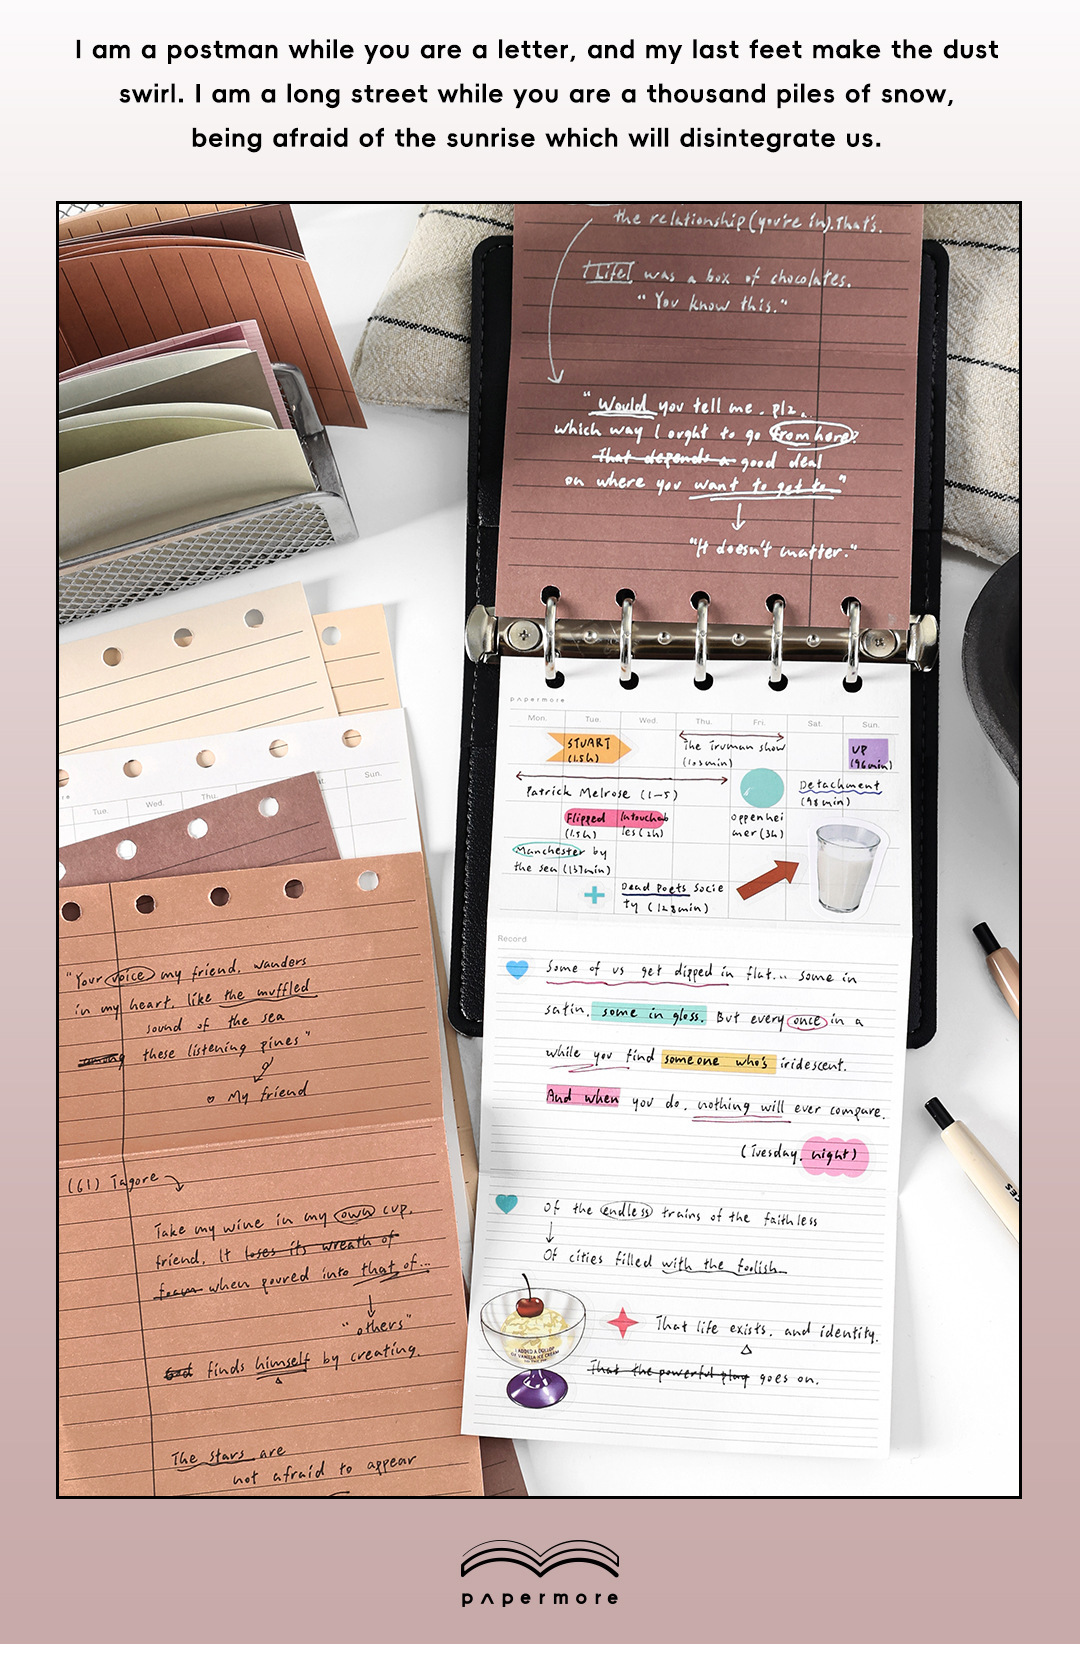 I am a postman while you are a letter, and my last feet make the dust
swirl. I am a long street while you are a thousand piles of snow,
being afraid of the sunrise which will disintegrate us.
the relationship (you're in). That's.
Life! was a box of chocolates.
"You know this."
"Would you tell me. plz..
which way I ought to go from here?
That depends a good deal
on where you want to get to"
"It doesn't matter."
papermore
Mon. Tue. Wed. Thu. Fri. Sat. Sun.
STUART
(1.5h)
The Truman show
(103min)
UP
(96min)
Patrick Melrose (1-5)
Detachment
(98min)
Flipped
(1.5h)
Intouchab
les (2h)
Oppenhei
mer (3h)
Manchester by
the sea (137min)
Dead Poets Socie
ty (128min)
Record
Some of us get dipped in flat... some in
satin. some in gloss. But every once in a
while you find someone who's iridescent.
And when you do. nothing will ever compare.
(Tuesday. night)
Of the endless trains of the faithless
Of cities filled with the foolish
I ADDED A DOLLOP
OF VANILLA ICE CREAM
That life exists. and identity.
That the powerful play goes on.
Sun.
Tue. Wed. Thu.
"Your voice my friend. wanders
in my heart. like the muffled
sound of the sea
among these listening pines"
My friend
(61) Tagore
Take my wine in my own cup.
friend. It loses its wreath of
foam when poured into that of...
"others"
God finds himself by creating.
The stars are
not afraid to appear
papermore